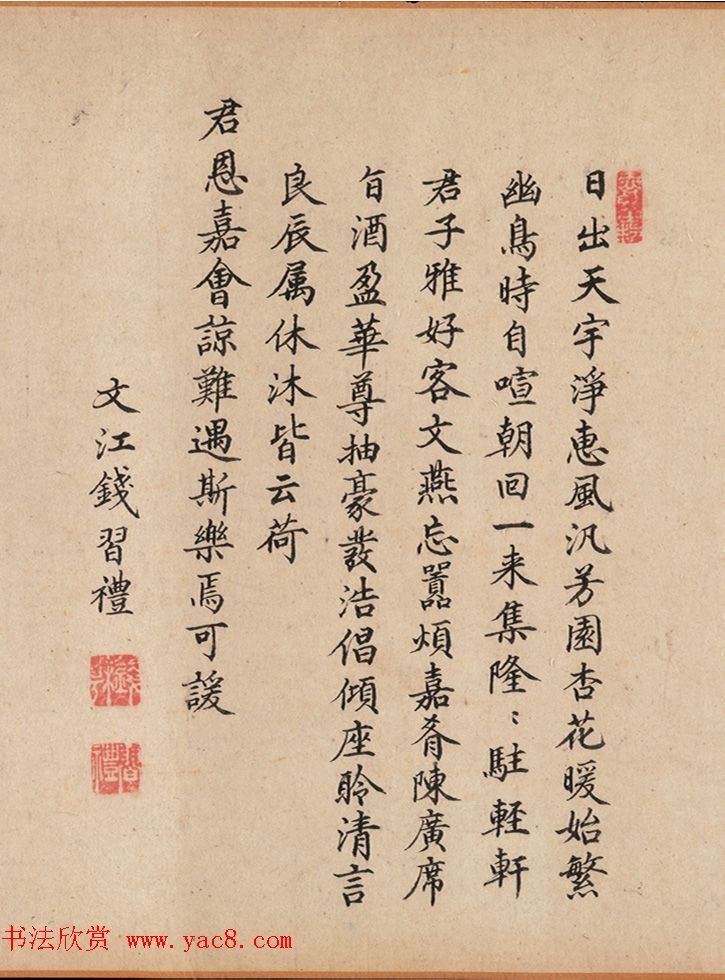 日出天宇淨惠風汎芳園杏花暖始繁
幽鳥時自喧朝回一来集隆〻駐輕軒
君子雅好客文燕忘囂煩嘉肴陳廣席
旨酒盈華尊抽豪發浩倡傾座聆清言
良辰属休沐皆云荷
君恩嘉會諒難遇斯樂焉可諼
文江錢習禮
錢氏
習禮
书法欣赏 www.yac8.com